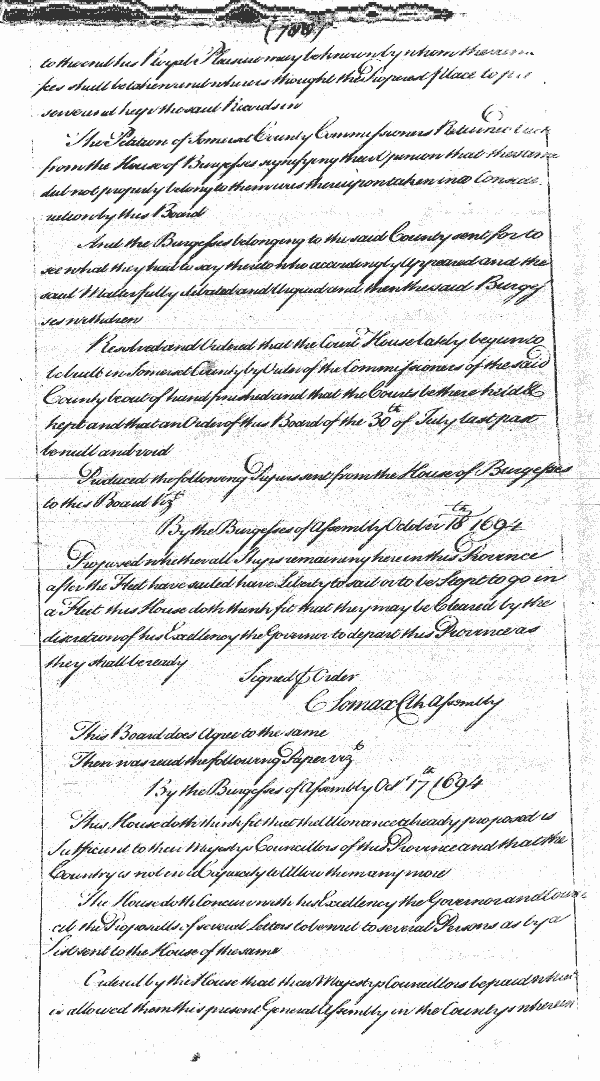 to the end his Royal Pleasure may be known by whom the
fees shall be taken and where is thought the Properest place to
serve and keep the said Records in
The Petition of Somerset County Commissioners Returned back
from the House of Burgesses signifying their Opinion that the same
did not properly belong to them was thereupon taken into Conside
ration by this Board
And the Burgesses belonging to the said County sent for to
see what they had to say thereto who accordingly Appeared and the
said Matter fully debated and Argued and then the said Burges
ses withdrew
Resolved and Ordered that the Court House lately begun to
be built in Somerset County by Order of the Commissioners of the said
County be out of hand finished and that the Courts be there held &
kept and that an Order of this Board of the 30th of July last past
be null and void
Produced the following Papers sent from the House of Burgesses
to this Board Vizt
By the Burgesses of Assembly October 18th 1694
Proposed whether all Ships remaining here in this Province
after the Fleet have sailed have Liberty to sail or to be Kept to go in
a Fleet this House doth think fit that they may be Cleared by the
discretion of his Excellency the Governor to depart this Province as
they shall be ready
Signed p Order
C Lomax Clk Assembly
This Board does Agree to the same
Then was read the following Paper vizt
By the Burgesses of Assembly Octr 17th 1694
This House doth think fit that the Allowance already proposed is
Sufficient to their Majestys Councillors of this Province and that the
Country is not in a Capacity to Allow them any more
The House doth Concur with his Excellency the Governor and Coun
cil the Proposalls of several Letters to be writ to several Persons as by a
List sent to the House of the same
Ordered by the House that their Majestys Councillors be paid what
is allowed them this present General Assembly in the Countys wherein